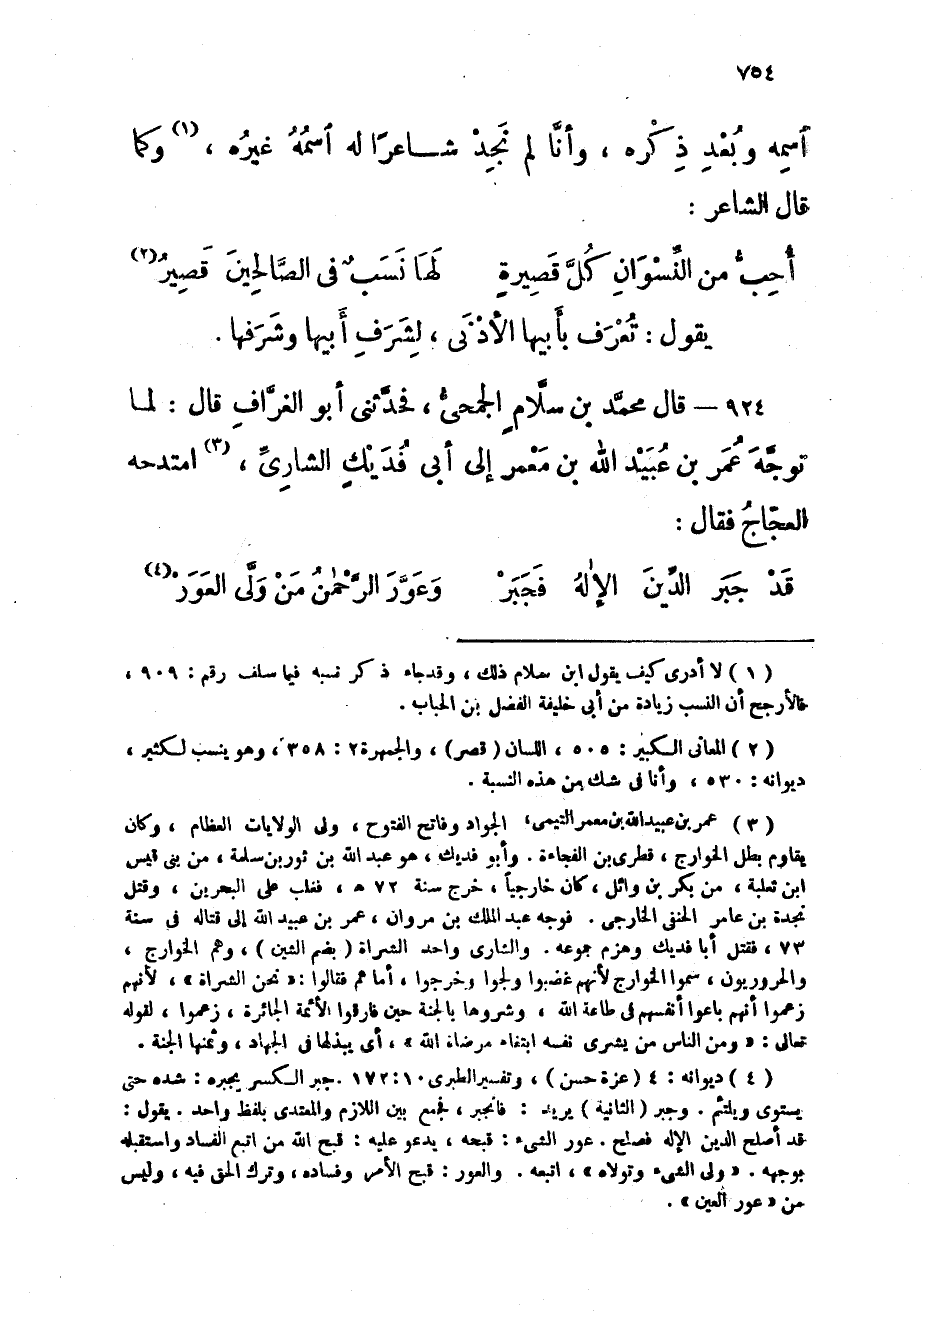 ٧٥٤
ٱسمِه وبُعْدِ ذِكْره ، وأنَّا لم نَجِدْ شاعرًا له ٱسمُهُ غيرُه ، (١) وكما
قال الشاعر :
أُحِبُّ من النِّسْوَانِ كُلَّ قَصِيرةٍ لَهَا نَسَبٌ فى الصَّالِحِينَ قَصِيرُ (٢)
يقول : تُعْرَف بأَبيها الأدْنَى ، لِشَرَفِ أَبيها وشَرَفها .
٩٢٤ — قال محمَّد بن سلَّامٍ الجمَحىُّ ، فحدَّثنى أبو الغرَّافِ قال : لما
توجَّهَ عُمَر بن عُبَيْد الله بن مَعْمر إلى أبى فُدَيْكٍ الشارِىِّ ، (٣) امتدحه
العجّاجُ فقال :
قَدْ جَبَر الدِّينَ الإلٰهُ فَجَبَرْ وَعَوَّرَ الرَّحْمٰنُ مَنْ وَلَّى العَوَرْ (٤)
( ١ ) لا أدرى كيف يقول ابن سلام ذلك ، وقدجاء ذكر نسبه فيما سلف رقم : ٩٠٩ ،
فالأرجح أن النسب زيادة من أبى خليفة الفضل بن الحباب .
( ٢ ) المعانى الكبير : ٥٠٥ ، اللسان ( قصر ) ، والجمهرة ٢ : ٣٥٨ ، وهو ينسب لكثير ،
ديوانه : ٥٣٠ ، وأنا فى شك من هذه النسبة .
( ٣ ) عمر بن عبيد الله بن معمر التيمى ، الجواد وفاتح الفتوح ، ولى الولايات العظام ، وكان
يقاوم بطل الخوارج ، قطرى بن الفجاءة . وأبو فديك ، هو عبد الله بن ثور بن سلمة ، من بنى قيس
ابن ثعلبة ، من بكر بن وائل ، كان خارجياً ، خرج سنة ٧٢ هـ ، فغلب على البحرين ، وقتل
نجدة بن عامر الحنفى الخارجى . فوجه عبد الملك بن مروان ، عمر بن عبيد الله إلى قتاله فى سنة
٧٣ ، فقتل أبا فديك وهزم جموعه . والشارى واحد الشراة ( بضم الشين ) ، وهم الخوارج ،
والحروريون ، سموا الخوارج لأنهم غضبوا ولجوا وخرجوا ، أما هم فقالوا : « نحن الشراة » ، لأنهم
زعموا أنهم باعوا أنفسهم فى طاعة الله ، وشروها بالجنة حين فارقوا الأئمة الجائرة ، زعموا ، لقوله
تعالى : « ومن الناس من يشرى نفسه ابتغاء مرضاة الله » ، أى يبذلها فى الجهاد ، وثمنها الجنة .
( ٤ ) ديوانه : ٤ ( عزة حسن ) ، وتفسير الطبرى ١٠ : ١٧٢ . جبر الكسر يجبره : شده حتى
يستوى ويلتئم . وجبر ( الثانية ) يريد : فانجبر ، فجمع بين اللازم والمعتدى بلفظ واحد . يقول :
قد أصلح الدين الإله فصلح . عور الشىء : قبحه ، يدعو عليه : قبح الله من اتبع الفساد واستقبله
بوجهه . « ولى الشىء وتولاه » ، اتبعه . والعور : قبح الأمر وفساده ، وترك الحق فيه ، وليس
من « عور العين » .